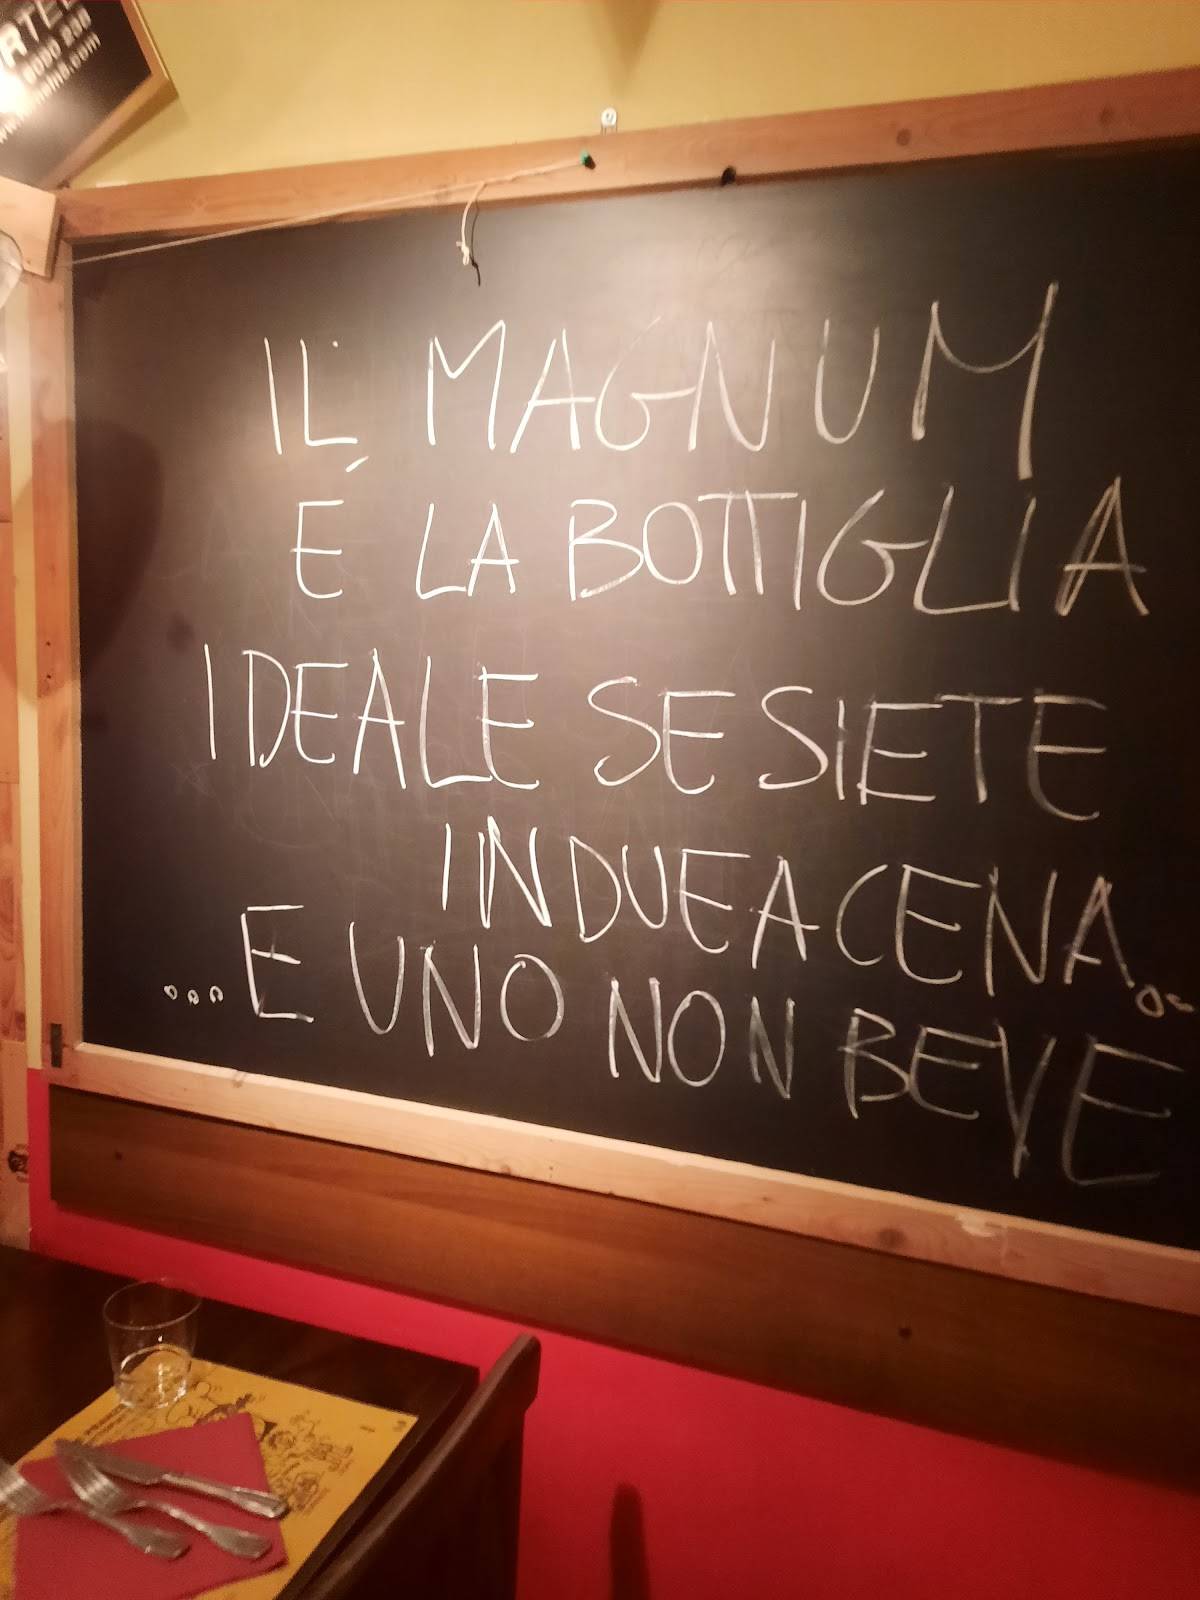 IL MAGNUM
É LA BOTTIGLIA
IDEALE SE SIETE
IN DUE A CENA...
...E UNO NON BEVE